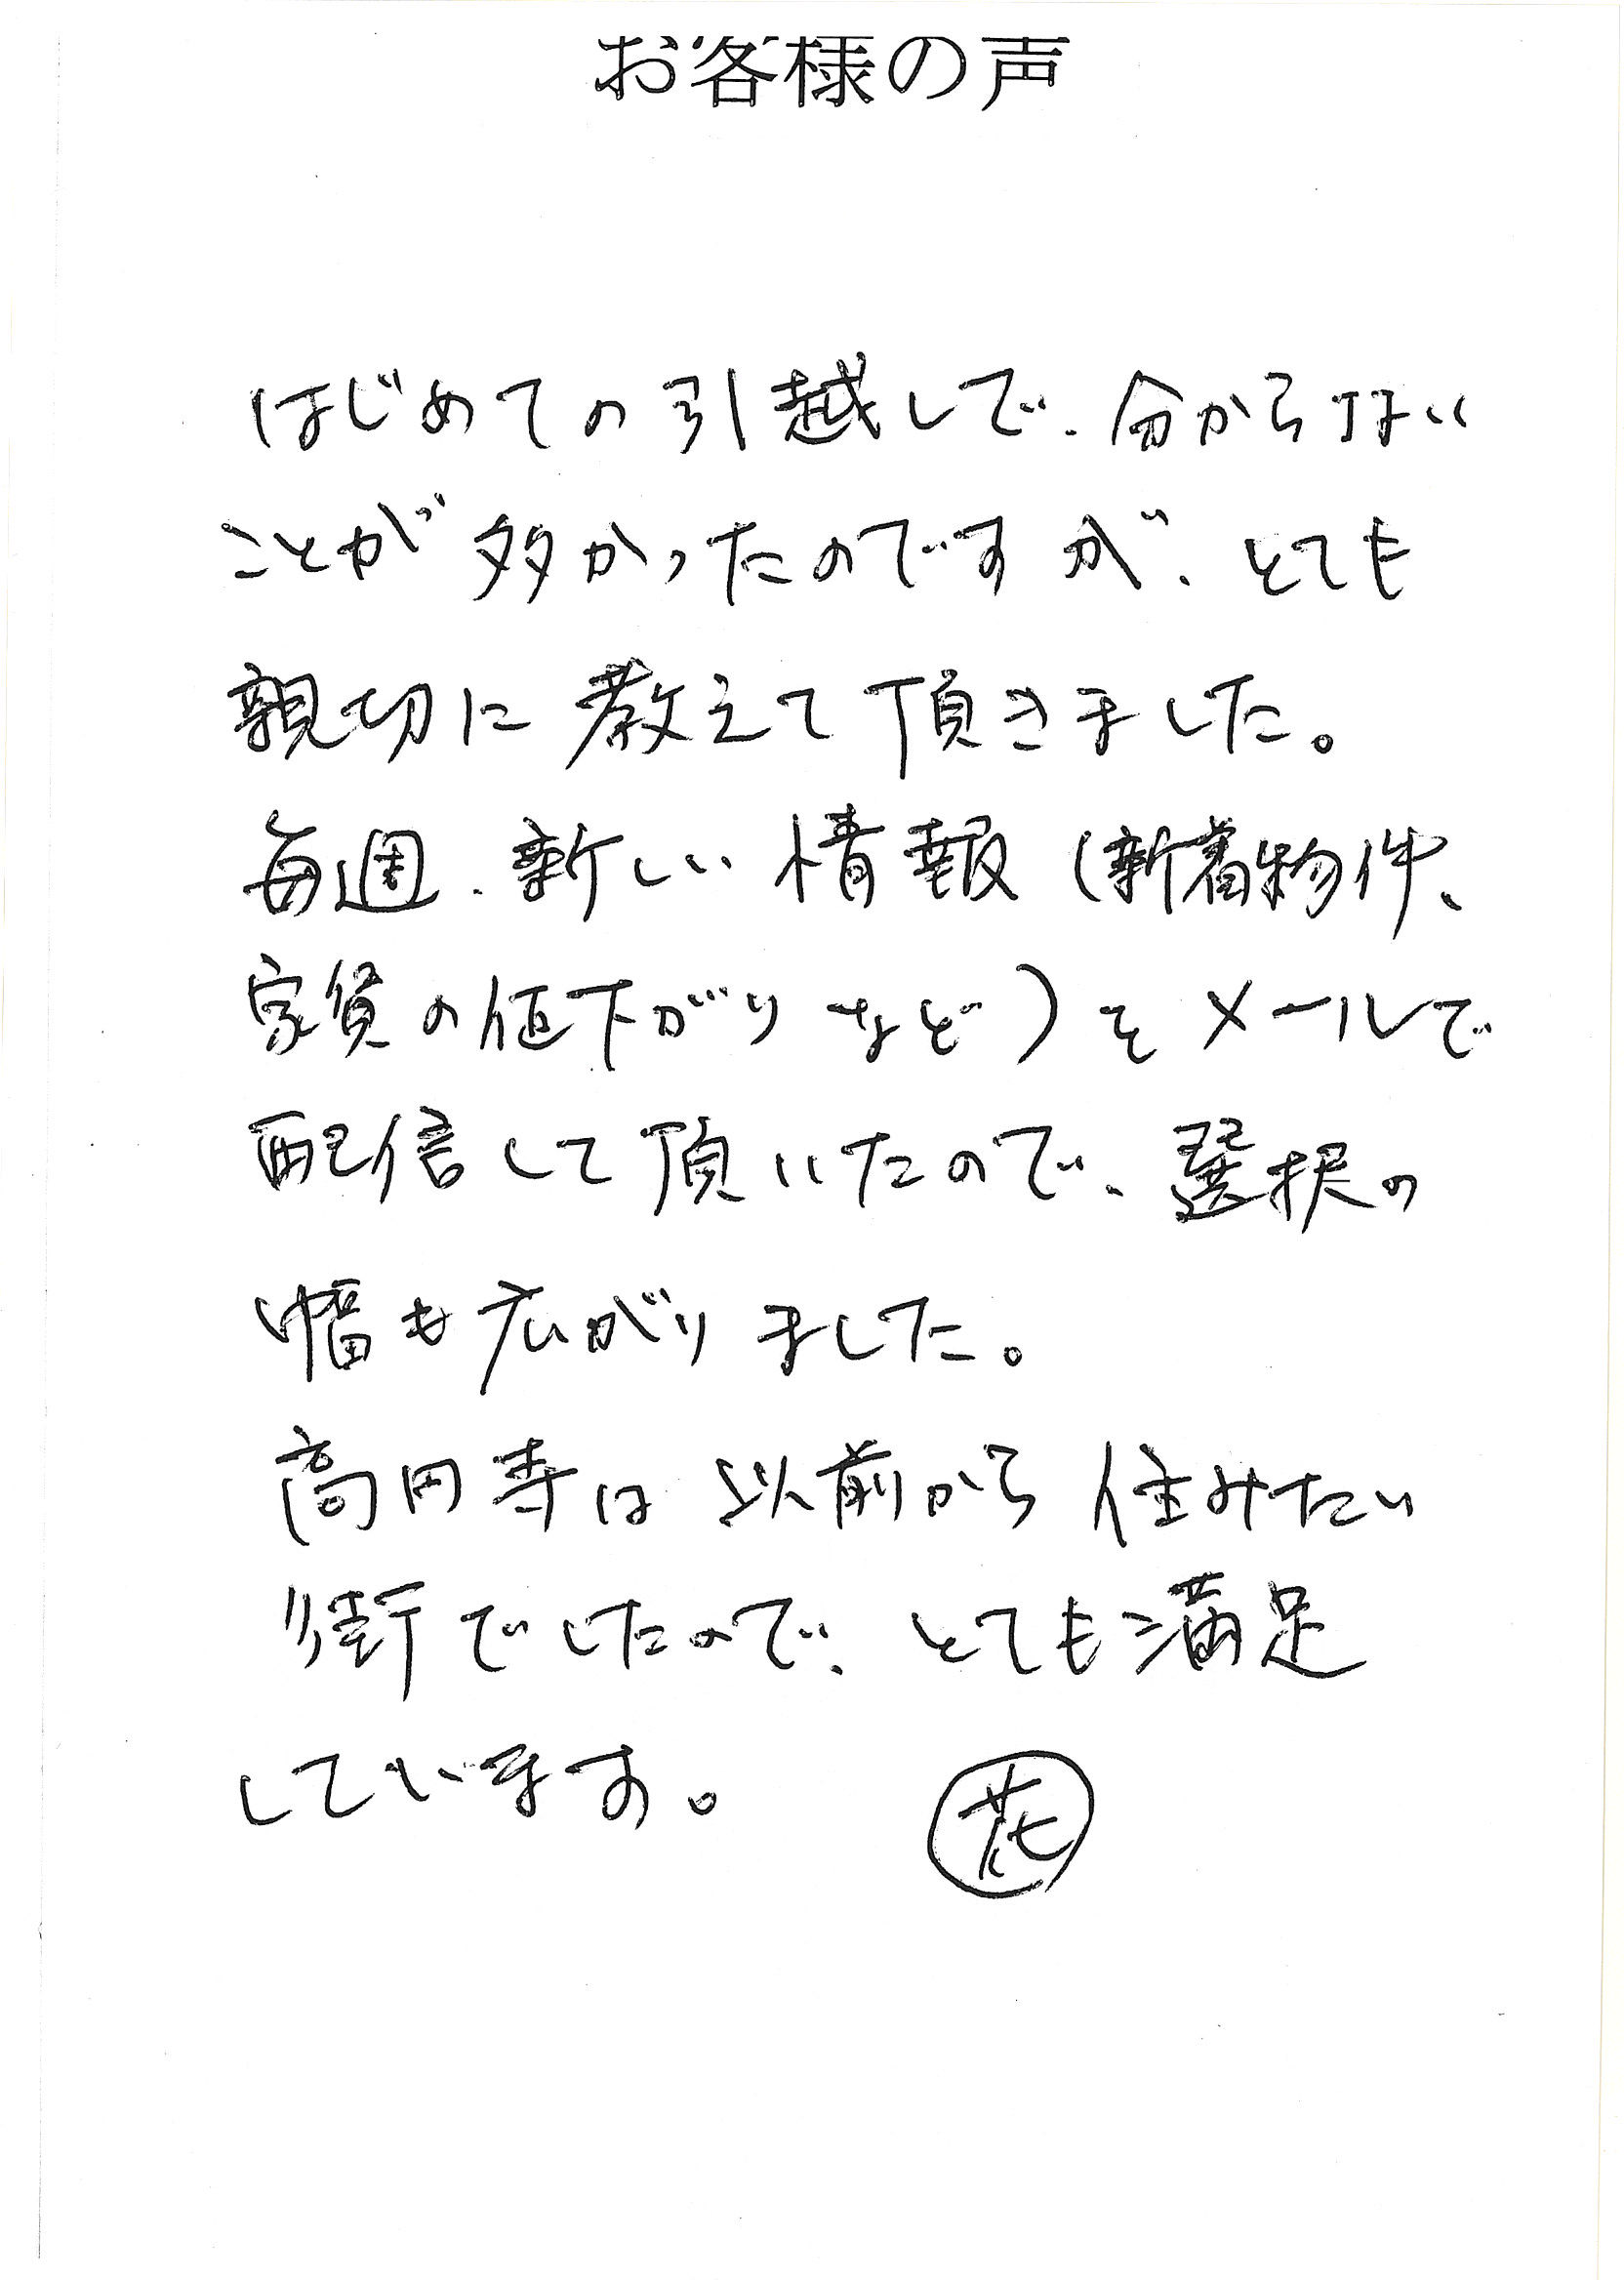 お客様の声
はじめての引越しで、分からない
ことが多かったのですが、とても
親切に教えて頂きました。
毎週、新しい情報(新着物件、
家賃の値下がりなど)をメールで
配信して頂いたので、選択の
幅も広がりました。
高円寺は以前から住みたい
街でしたので、とても満足
しています。
花